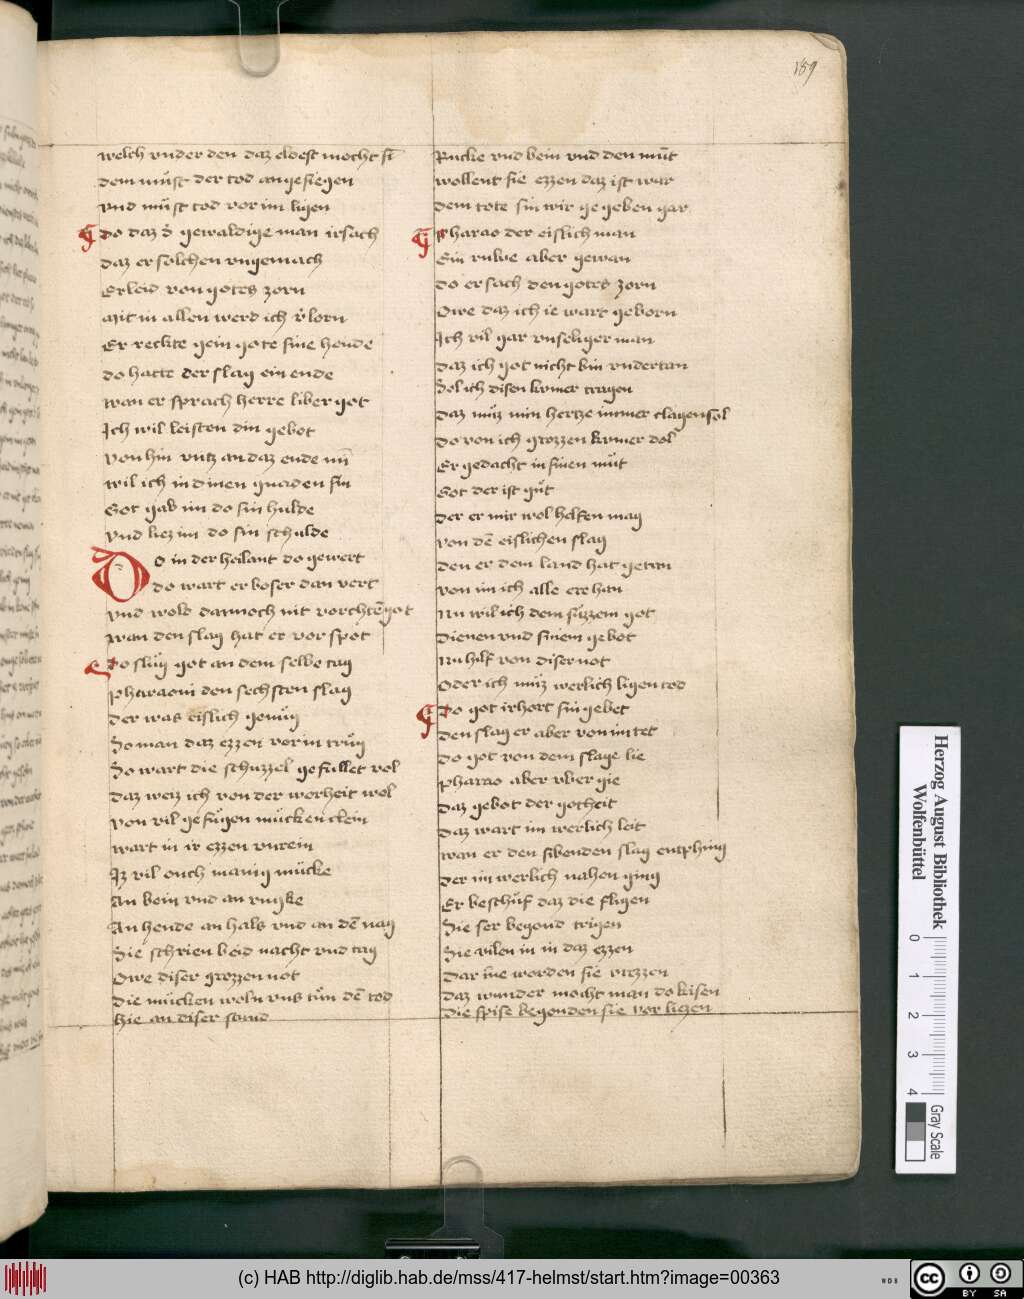 189
welch vnder den daz eldest mocht si
dem můst der tod angesiegen
vnd můst tod vor im ligen
do daz d' gewaldige man irsach
daz er solchen vngemach
Erleid von gotes zorn
Mit in allen werd ich v'lorn
Er reckte gein gote sine hende
do hatte der slag ein ende
wan er sprach herre liber got
Ich wil leisten din gebot
von hin vntz an daz ende min
wil ich in dinen gnaden sin
Got gab im do sin hulde
vnd liez im do sin schulde
Do in der heilant do gewert
do wart er boser dan vert
vnd wold dannoch nit vorchtē got
wan den slag hat er vor spot
Do slůg got an dem selbe tag
pharaoni den sechsten slag
der was eislich genůg
So man daz ezzen vor in trůg
So wart die schuzzel gefullet vol
daz weiz ich von der worheit wol
von vil gefůgen můcken clein
wart in ir ezzen vnrein
Iz vil ouch manig můcke
An bein vnd an rugke
An hende an hals vnd an dē nag
Sie schrien beid nacht vnd tag
Owe diser grozzen not
die můcken woln vns tůn dē tod
hie an diser stund
Rucke vnd bein vnd den můt
wollent sie ezzen daz ist war
dem tote sin wir gegeben gar
Pharao der eislich man
Ein rulbe aber gewan
do er sach den gotes zorn
Owe daz ich ie wart geborn
Ich vil gar vnseliger man
daz ich got nicht bin vndertan
Sol ich disen kvmer tragen
daz můz min hertze immer clagen sol
do von ich grozzen kvmer dol
Er gedacht in sinen můt
Got der ist gůt
der er mir wol helfen mag
von dē eislichen slag
den er dem land hat getan
von im ich alle ere han
Nu wil ich dem sůzzem got
dienen vnd sinem gebot
Nu hilf von diser not
Oder ich můz werlich ligen tod
Do got irhort sin gebet
den slag er aber von im tet
do got von dem slage lie
pharao aber vber gie
daz gebot der gotheit
daz wart im werlich leit
wan er den sibenden slag entphing
der im werlich nahen ging
Er beschůf daz die fligen
Sie ser begond trigen
Sie vilen in in daz ezzen
dar inne worden sie vrezzen
daz wunder mocht man do kisen
die spise begonden sie vorliezen
Herzog August Bibliothek
Wolfenbüttel
0 1 2 3 4
Gray Scale
(c) HAB http://diglib.hab.de/mss/417-helmst/start.htm?image=00363
WDB
cc BY SA